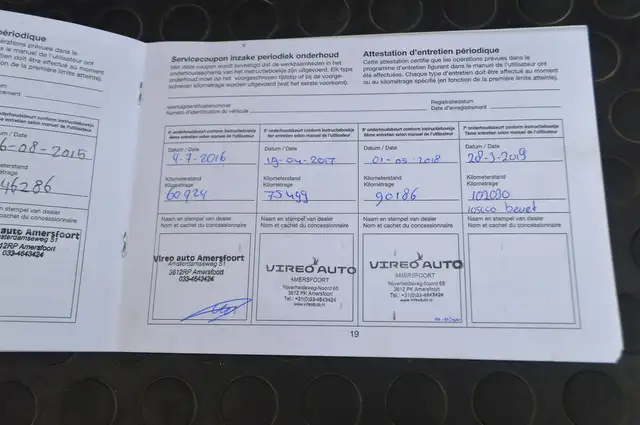 périodique
opérations prévues dans le
le manuel de l'utilisateur ont
entretien doit être effectué au moment
on de la première limite atteinte).
ement
onderhoudsbeurt conform instructieboekje
entretien selon manuel de l'utilisateur
/ Date
6-08-2015
Kilométrage
46286
en stempel van dealer
et cachet du concessionnaire
auto Amersfoort
Amsterdamseweg 51
3812RP Amersfoort
033-4643424
Servicecoupon inzake periodiek onderhoud
Met deze coupon wordt bevestigd dat de werkzaamheden in het
onderhoudsschema van het instructieboekje zijn uitgevoerd. Elk type
onderhoud moet op het voorgeschreven tijdstip of bij de voorge-
schreven kilometrage worden uitgevoerd (wat het eerste voorkomt).
Attestation d'entretien périodique
Cette attestation certifie que les opérations prévues dans le
programme d'entretien figurant dans le manuel de l'utilisateur ont
été effectuées. Chaque type d'entretien doit être effectué au moment
ou au kilométrage spécifié (en fonction de la première limite atteinte).
Voertuigidentificatienummer
Numéro d'identification du véhicule
Registratiedatum
Date d'enregistrement
4e onderhoudsbeurt conform instructieboekje
4ème entretien selon manuel de l'utilisateur
5e onderhoudsbeurt conform instructieboekje
5ème entretien selon manuel de l'utilisateur
6e onderhoudsbeurt conform instructieboekje
6ème entretien selon manuel de l'utilisateur
7e onderhoudsbeurt conform instructieboekje
7ème entretien selon manuel de l'utilisateur
Datum / Date
4-7-2016
Datum / Date
19-04-2017
Datum / Date
01-05-2018
Datum / Date
28-3-2019
Kilometerstand
Kilométrage
60924
Kilometerstand
Kilométrage
75499
Kilometerstand
Kilométrage
90186
Kilometerstand
Kilométrage
Naam en stempel van dealer
Nom et cachet du concessionnaire
Naam en stempel van dealer
Nom et cachet du concessionnaire
Naam en stempel van dealer
Nom et cachet du concessionnaire
Naam en stempel van dealer
Nom et cachet du concessionnaire
Vireo auto Amersfoort
Amsterdamseweg 51
3812RP Amersfoort
033-4643424
VIREO AUTO
AMERSFOORT
Nijverheidsweg-Noord 65
3812 PK Amersfoort
Tel.: +31(0)33-4643424
www.vireoauto.nl
VIREO AUTO
AMERSFOORT
Nijverheidsweg-Noord 65
3812 PK Amersfoort
Tel.: +31(0)33-4643424
www.vireoauto.nl
19